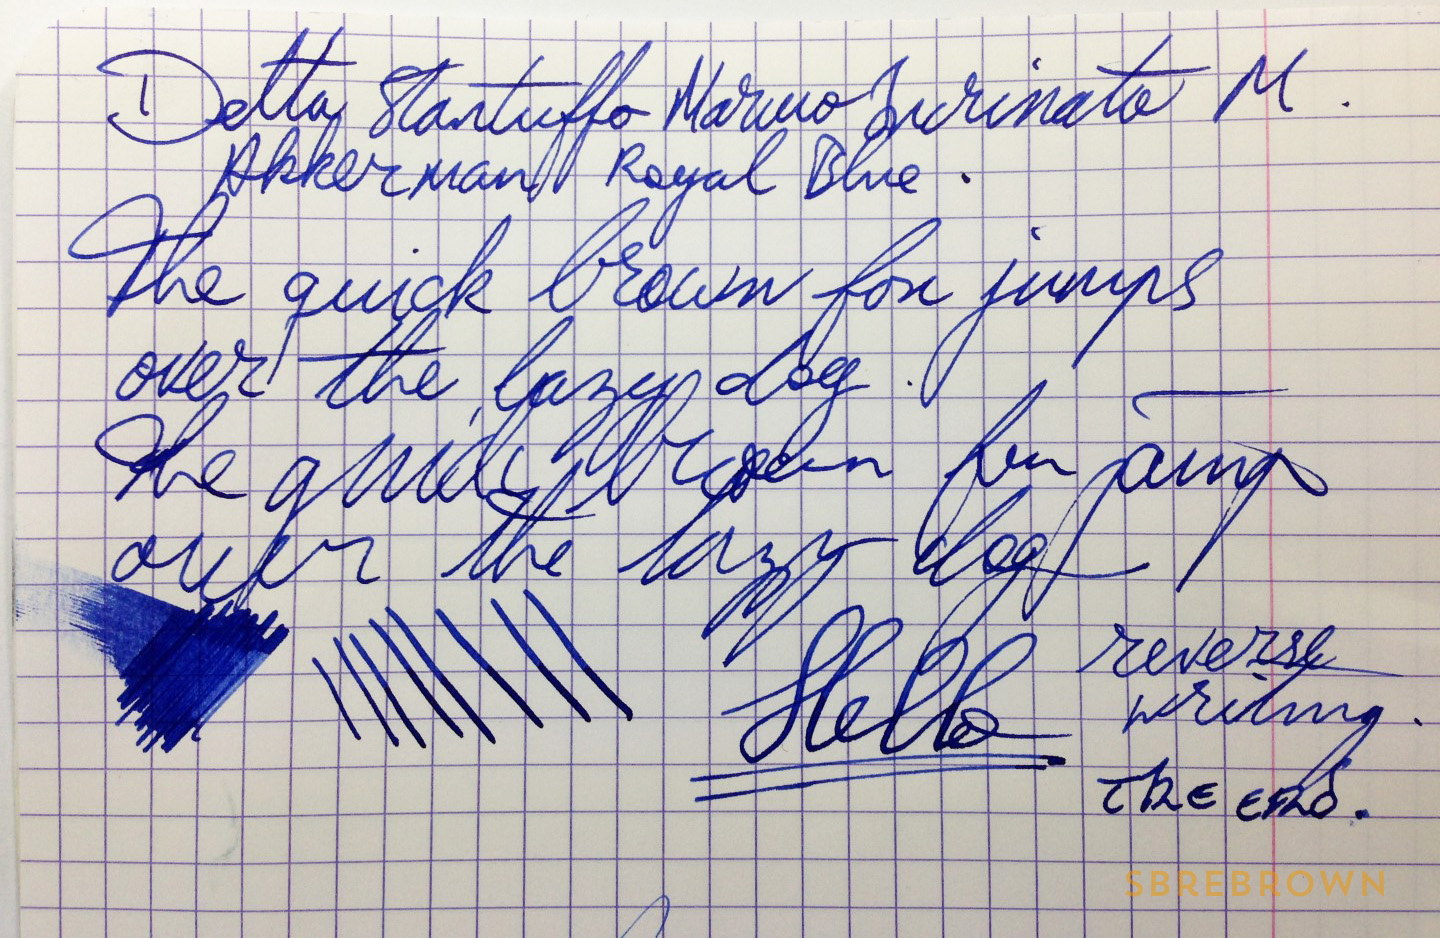 Delta Stantuffo Marmo Venato M.
Akkerman Royal Blue.
The quick brown fox jumps
over the lazy dog.
The quick brown fox jumps
over the lazy dog
Hello
reverse
writing.
the end.
SBREBROWN